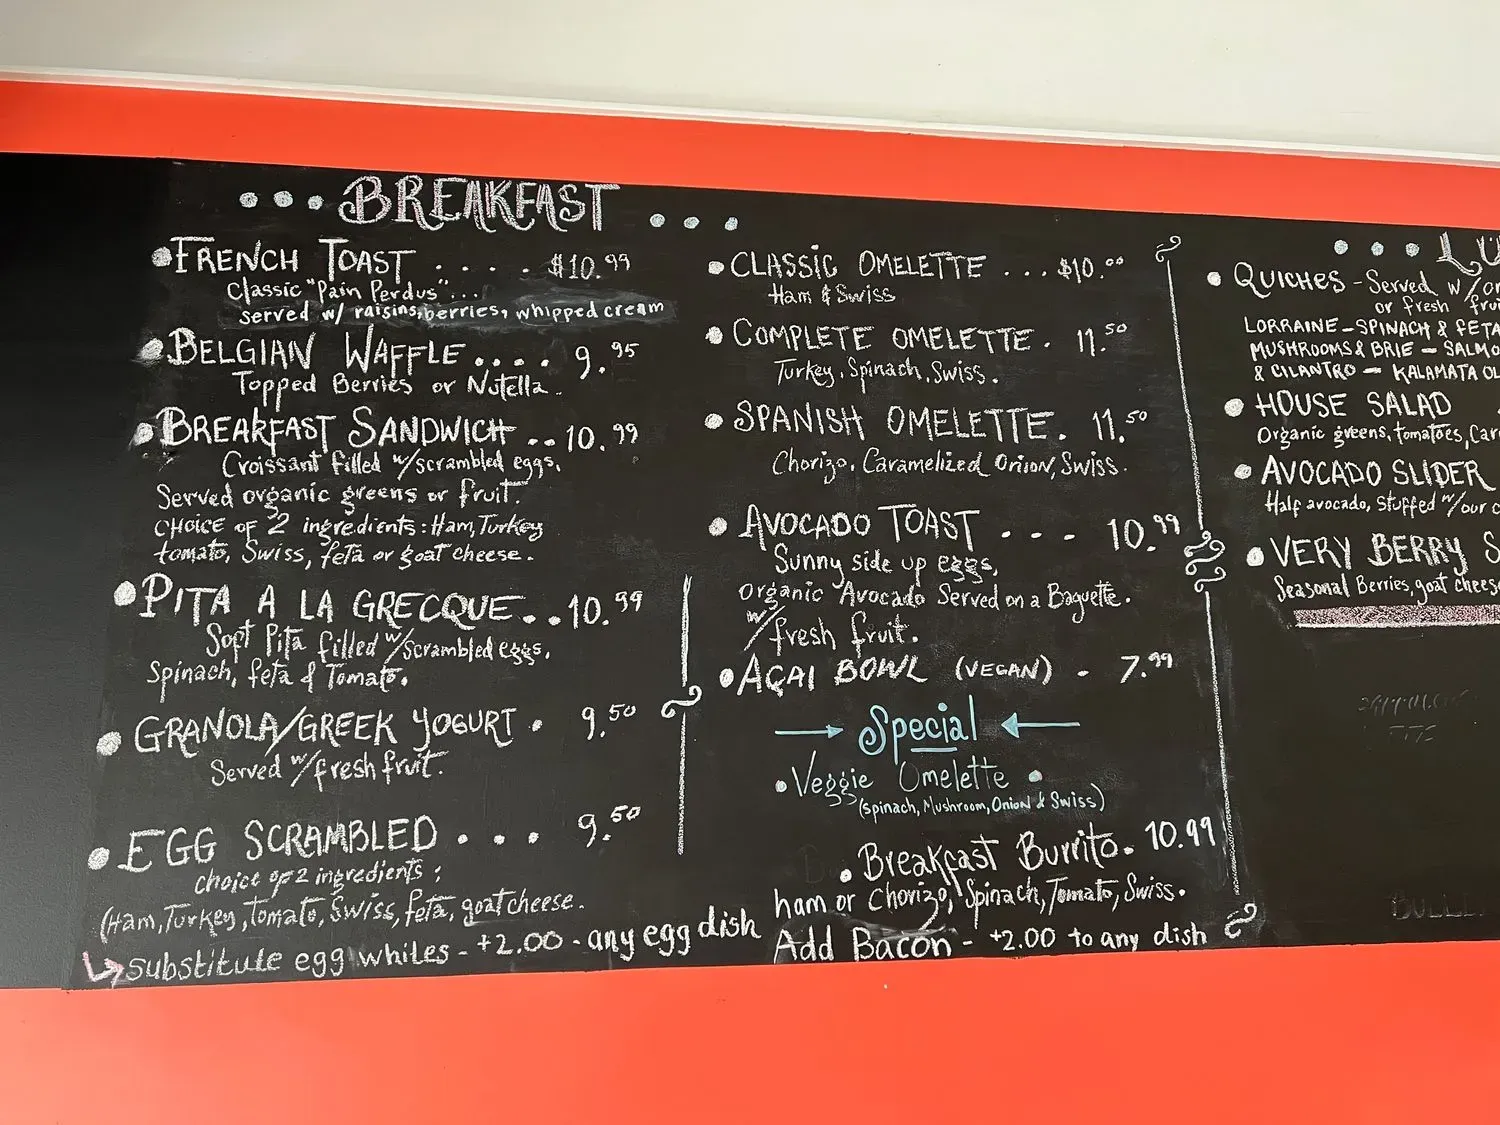 BREAKFAST
FRENCH TOAST . . . . $10.99
Classic "Pain Perdus"...
served w/ raisins, berries, whipped cream
BELGIAN WAFFLE.... 9.95
Topped Berries or Nutella.
BREAKFAST SANDWICH .. 10.99
Croissant filled w/scrambled eggs.
Served organic greens or fruit.
CHOICE OF 2 ingredients: Ham, Turkey
tomato, Swiss, feta or goat cheese.
PITA A LA GRECQUE.. 10.99
Soft Pita filled w/scrambled eggs,
Spinach, feta & Tomato.
GRANOLA/GREEK YOGURT . 9.50
Served w/fresh fruit.
EGG SCRAMBLED . . . 9.50
choice of 2 ingredients;
(Ham, Turkey, tomato, Swiss, feta, goat cheese.
substitute egg whites - +2.00 - any egg dish
CLASSIC OMELETTE ... $10.00
Ham & Swiss
COMPLETE OMELETTE . 11.50
Turkey, Spinach, Swiss.
SPANISH OMELETTE. 11.50
Chorizo, Caramelized Onion, Swiss.
AVOCADO TOAST . . . 10.99
Sunny side up eggs,
Organic Avocado Served on a Baguette.
w/fresh fruit.
AÇAI BOWL (VEGAN) . 7.99
Special
Veggie Omelette
(Spinach, Mushroom, Onion & Swiss)
Breakfast Burrito. 10.99
ham or Chorizo, Spinach, Tomato, Swiss.
Add Bacon - +2.00 to any dish
QUICHES - Served w/
or fresh
LORRAINE - SPINACH & FETA
MUSHROOMS & BRIE -
& CILANTRO - KALAMATA
HOUSE SALAD
Organic greens, tomatoes,
AVOCADO SLIDER
Half avocado, stuffed w/our
VERY BERRY
Seasonal Berries, goat cheese